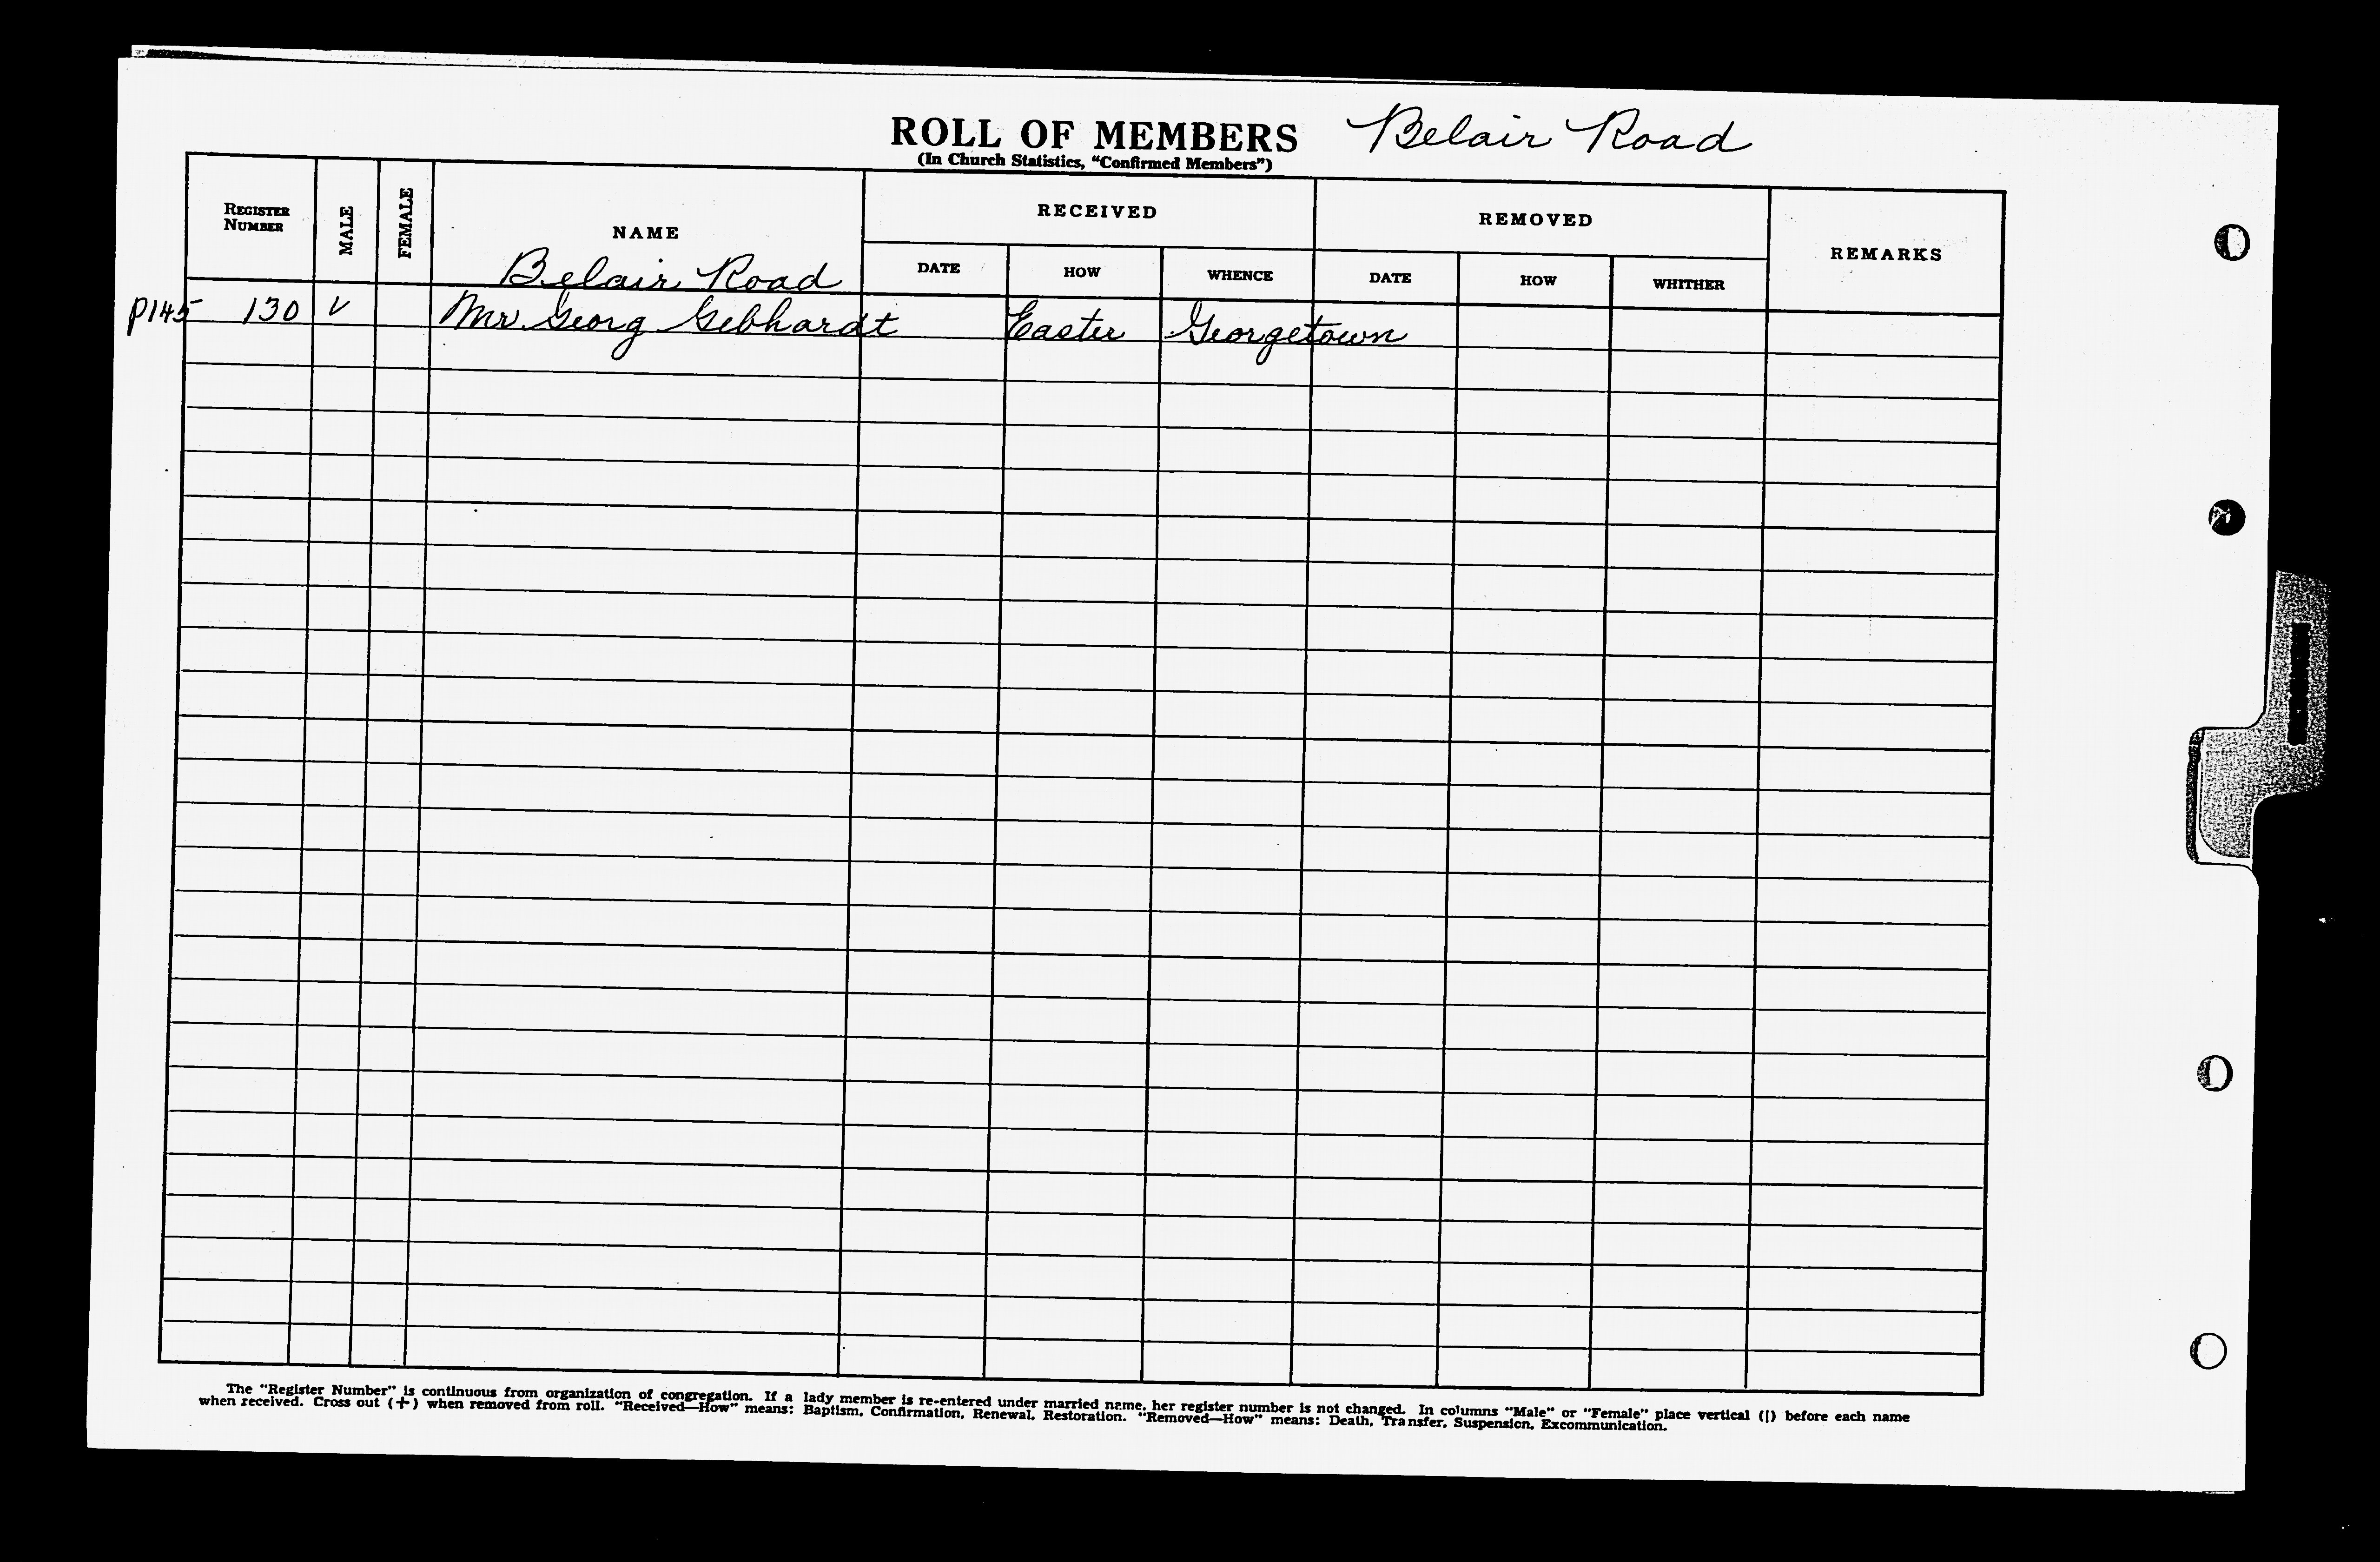 ROLL OF MEMBERS Belair Road
(In Church Statistics, "Confirmed Members")
REGISTER NUMBER MALE FEMALE NAME RECEIVED REMOVED REMARKS
DATE HOW WHENCE DATE HOW WHITHER
Belair Road
P145 130 ✓ Mr. Georg Gebhardt Easter Georgetown
The "Register Number" is continuous from organization of congregation. If a lady member is re-entered under married name, her register number is not changed. In columns "Male" or "Female" place vertical (|) before each name
when received. Cross out (+) when removed from roll. "Received—How" means: Baptism, Confirmation, Renewal, Restoration. "Removed—How" means: Death, Transfer, Suspension, Excommunication.